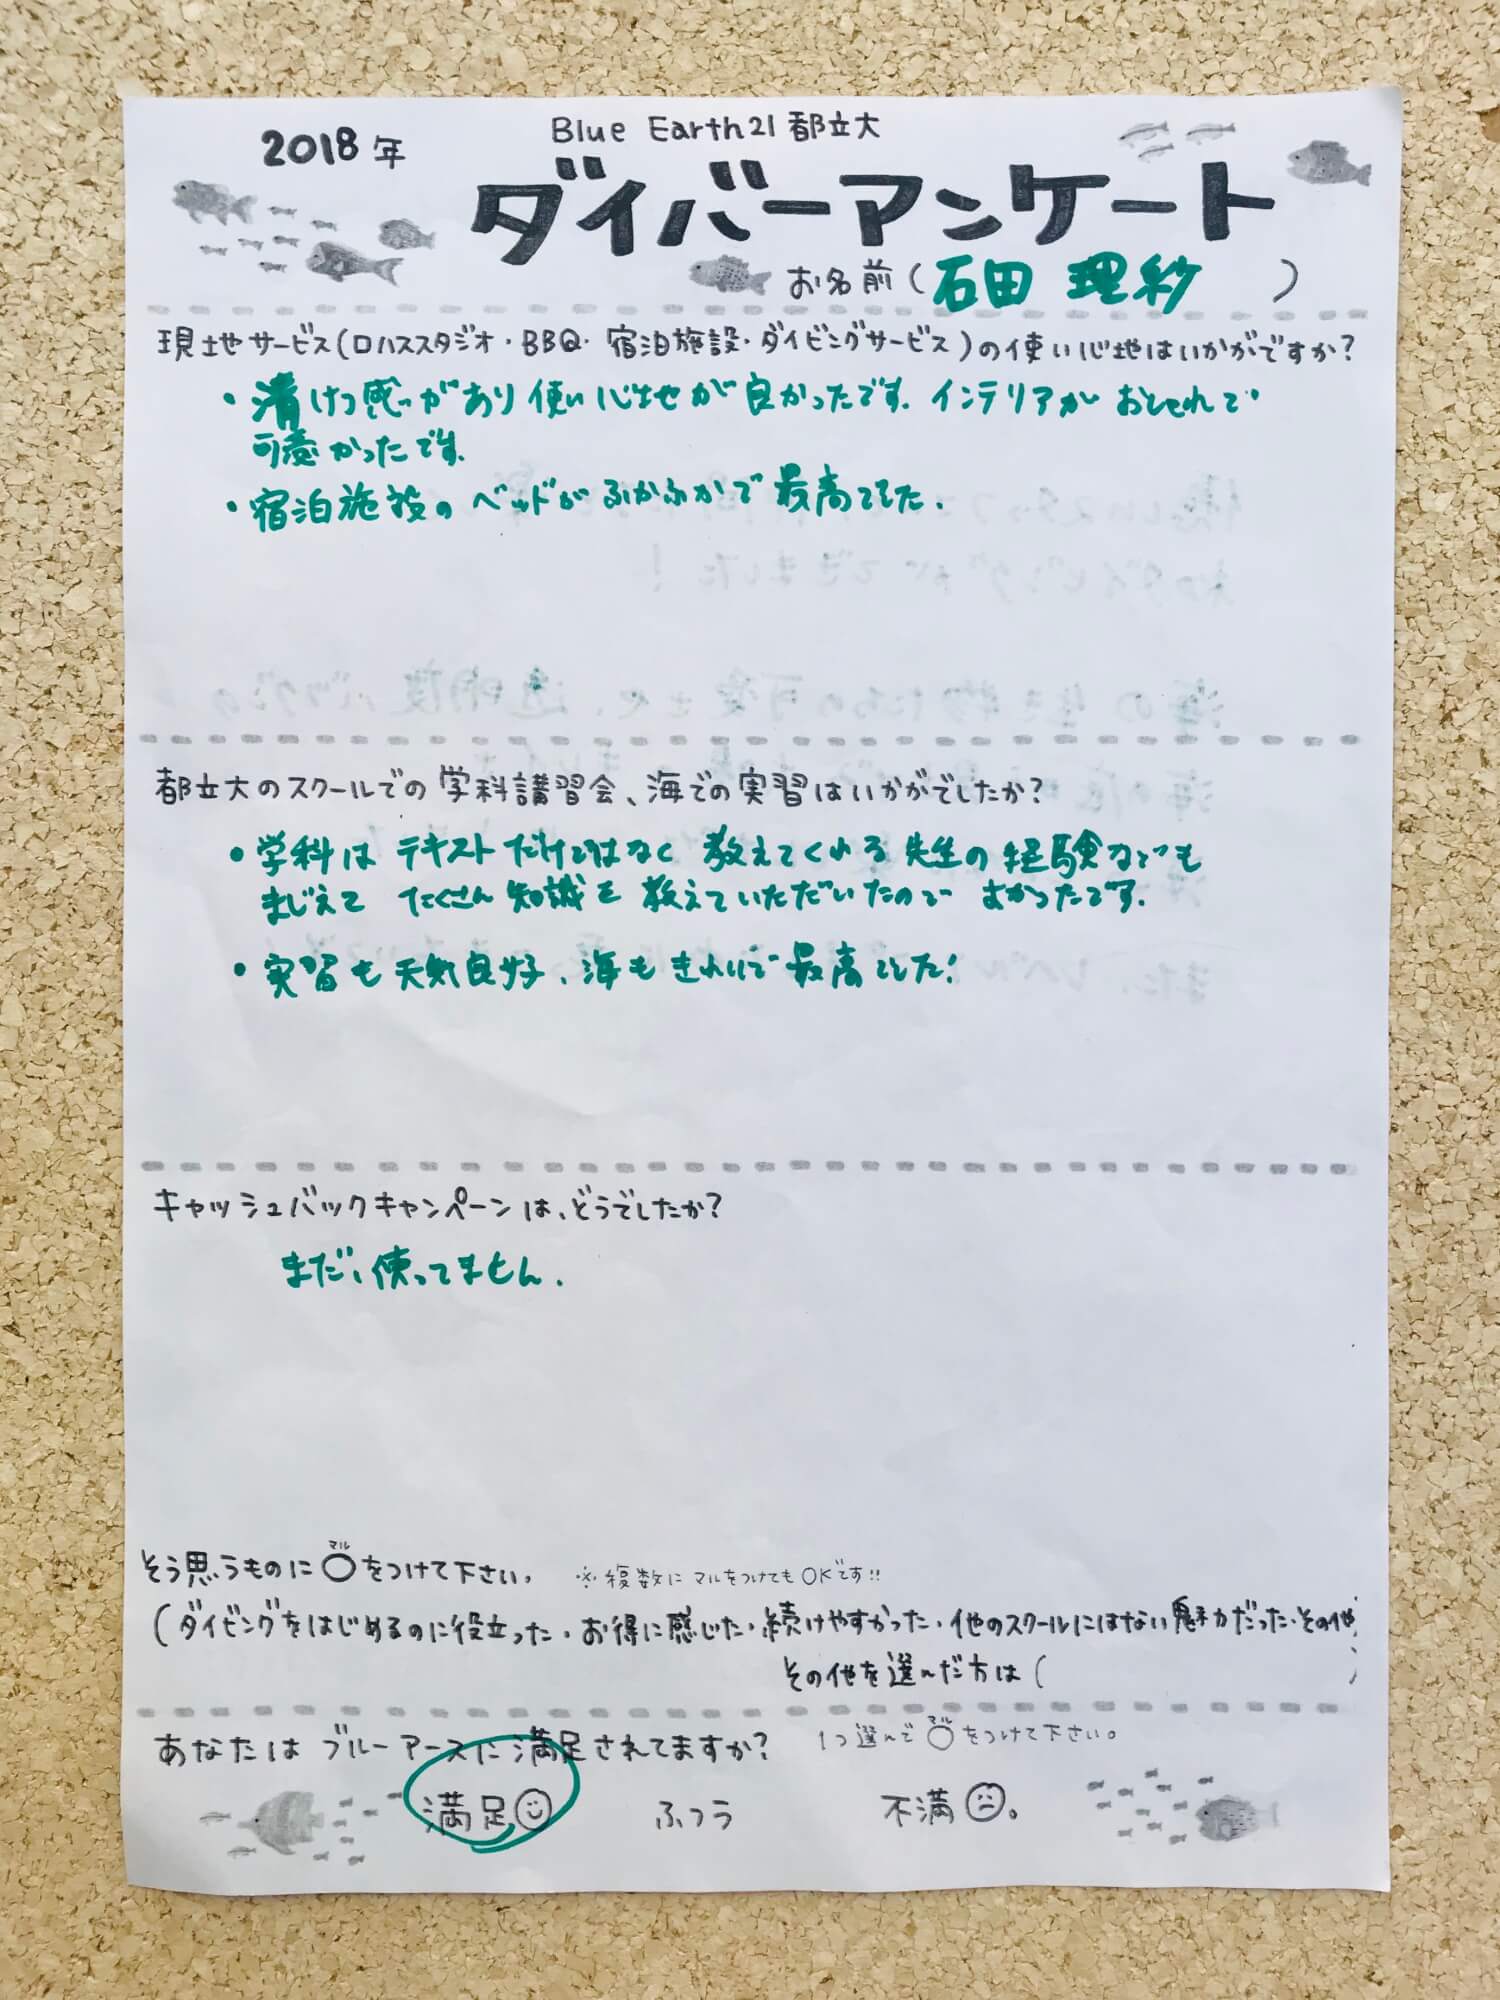 2018年
Blue Earth21 都立大
ダイバーアンケート
お名前(石田 理紗)
現地サービス(ロハススタジオ・BBQ・宿泊施設・ダイビングサービス)の使い心地はいかがですか?
・清けつ感があり使い心地が良かったです。インテリアがおしゃれで
可愛かったです。
・宿泊施設のベッドがふかふかで最高でした.
都立大のスクールでの学科講習会、海での実習はいかがでしたか?
・学科はテキストだけではなく教えてくれる先生の経験なども
まじえてたくさん知識を教えていただいたのでよかったです.
・実習も天気良好、海もきれいで最高でした!
キャッシュバックキャンペーンは、どうでしたか?
まだ、使ってません.
マル
そう思うものに○をつけて下さい。 ※複数にマルをつけてもOKです!!
(ダイビングをはじめるのに役立った・お得に感じた・続けやすかった・他のスクールにはない魅力だった・その他
その他を選んだ方は( )
マル
あなたはブルーアースに満足されてますか? 1つ選んで○をつけて下さい。
満足 ふつう 不満。